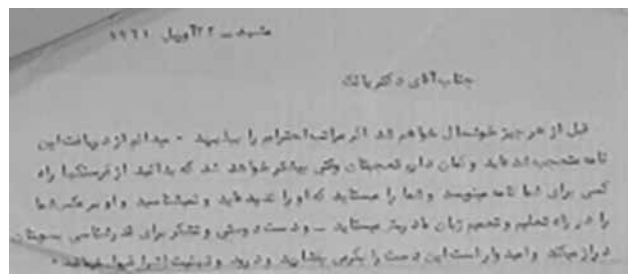 مشهد ـ ۲۲ آوریل ۱۹۶۱
جناب آقای دکتر بانک
قبل از هر چیز خوشحال خواهم شد اگر مراتب احترام را بپذیرید ۰ میدانم از دریافت این
نامه متعجب شده‌اید و گمان دارم تعجبتان وقتی بیشتر خواهد شد که بدانید از فرسنگها راه
کسی برای شما نامه مینویسد و شما را میستاید که او را ندیده‌اید و نمیشناسید و او برعکس شما
را در راه تعلیم و تعمیم زبان مادریش میستاید ـ و دست دوستی و تشکر برای قدرشناسی بسویتان
دراز میکند و امیدوار است این دست را بگرمی بفشارید و درود و تهنیت را قبول فرمائید ۰